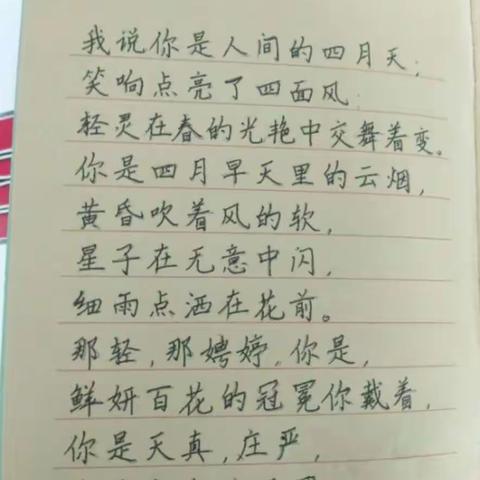 我说你是人间的四月天；
笑响点亮了四面风
轻灵在春的光艳中交舞着变。
你是四月早天里的云烟，
黄昏吹着风的软，
星子在无意中闪，
细雨点洒在花前。
那轻，那娉婷，你是，
鲜妍百花的冠冕你戴着，
你是天真，庄严，